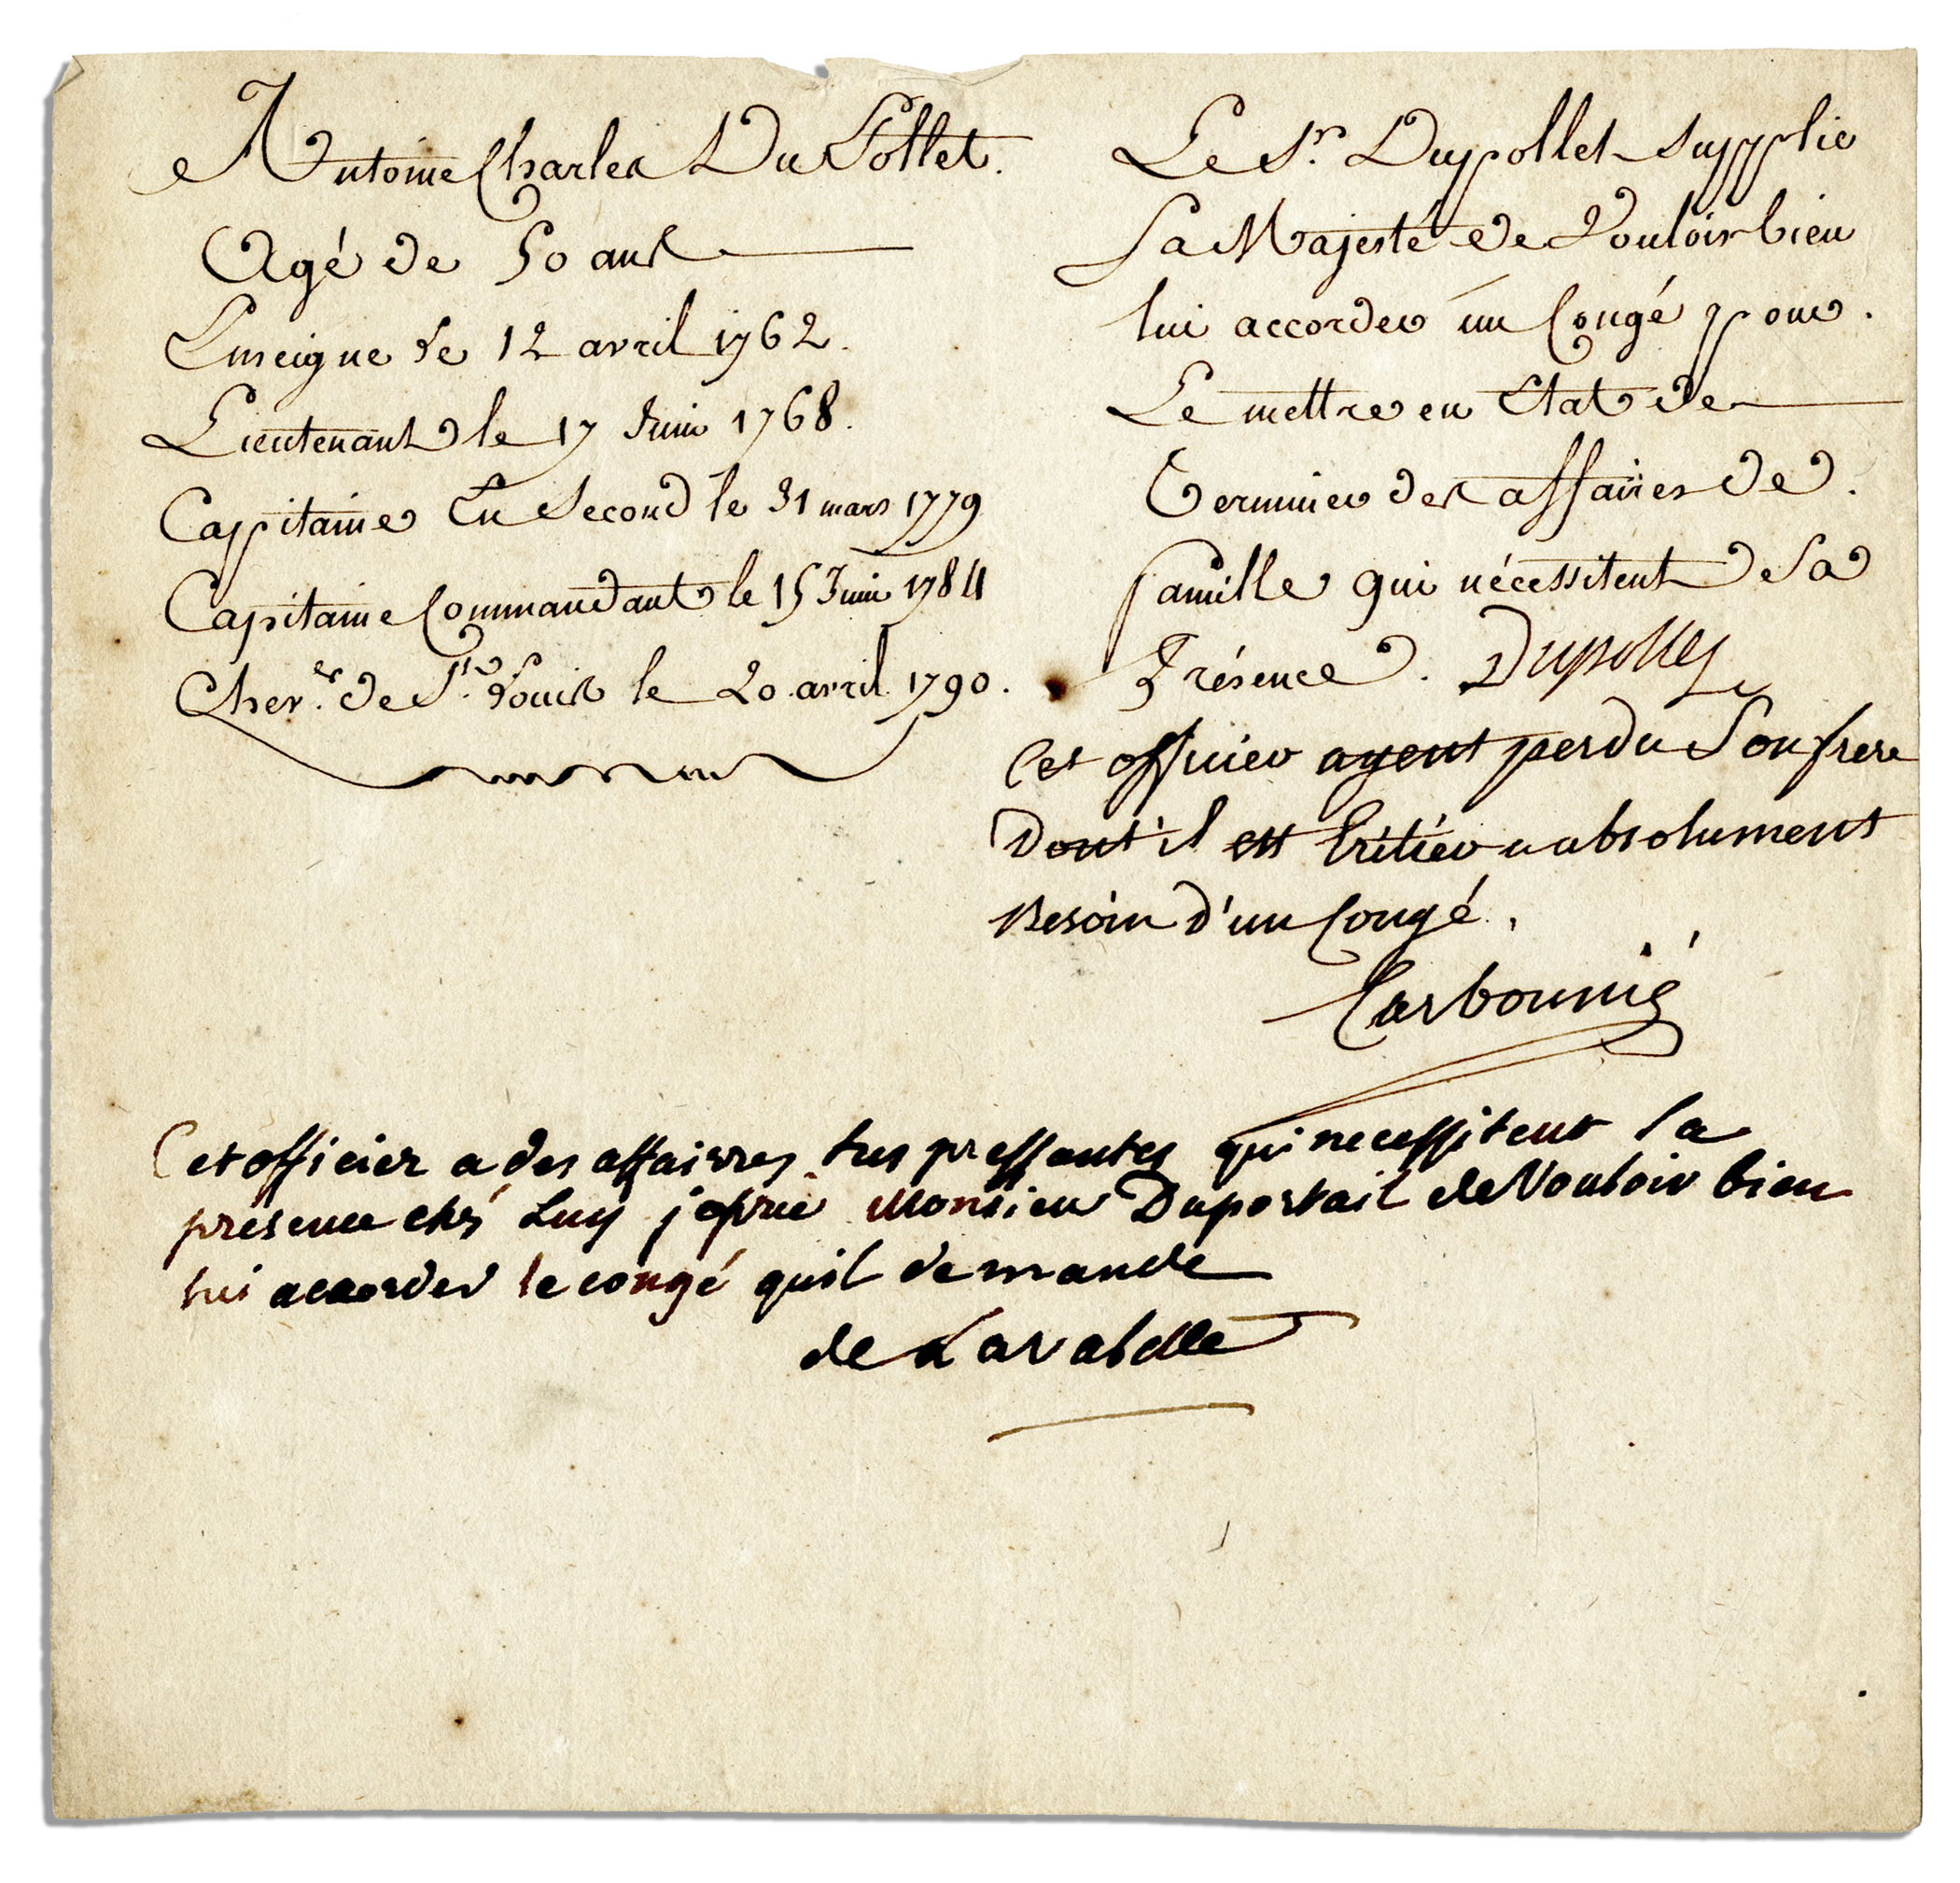 Antoine Charles Du Pollet.
Agé de 50 ans
Enseigne le 12 avril 1762.
Lieutenant le 17 Juin 1768.
Capitaine En Second le 31 mars 1779
Capitaine Commandant le 15 Juin 1784
Cher. de St. Louis le 20 avril 1790.
Le Sr. Dupollet supplie
Sa Majesté de Vouloir bien
lui accorder un Congé pour.
Le mettre en Etat de
Terminer des affaires de.
famille qui nécessitent Sa
Présence. Dupollet
Cet officier ayent perdu Son frere
Dont il est hritier a absolument
Besoin d'un Congé.
Carbonnié
Cet officier a des affairres tres pressantes qui necessitent la
presence chés Luy je prie Monsieur Duportail de Vouloir bien
lui accorder le congé quil demande
de Lavabelle